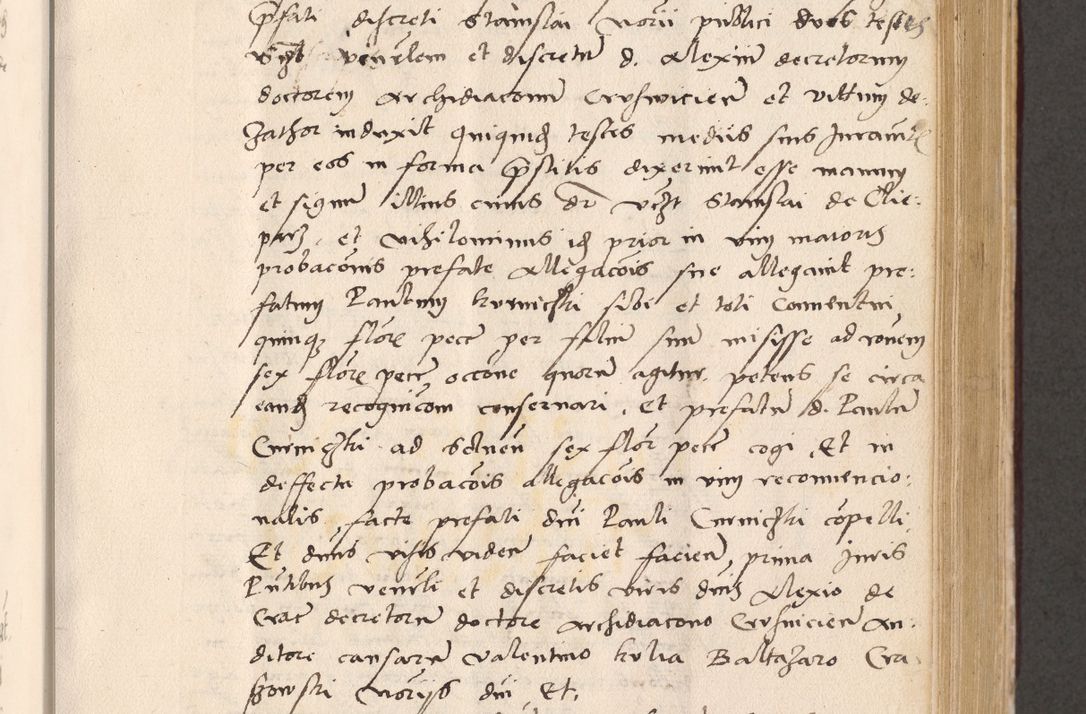 p̄fati discreti Stanislai Norii publici duos testes
vz̄ venerlem et discretū d. Alexium decretorum
doctorem Archidiaconū Crusvicień et vittum de
Zathor induxit quiquid testes mediis suis Juramtis
per eos in forma p̄stitis dixerunt esse manum
et signū illius cuius dr̄ vz̄t Stanislai de Clie-
parz, et nihilominus idem prior in vim maioris
probacōnis prefate Allegacōis sue allegavit pre-
fatum Paulum Kurniczki sibi et toti Conventui
quinqz florē pecē per filiū suū misisse ad rōnem
sex florē pecē, occōne quorū agitur, petens se circa
eandē recognicōm conservari, Et prefatū d. Paulū
Curniczki ad solueñ sex flor pecē cogi, Et in
deffectu probacōis allegacōis in vim reconvencio-
nalis, facte prefati dni Pauli Curniczki cōpelli
Et dnus visis videñ faciet facieñ, prima Juris
Pūtibus venerli et discretis viris dnis Alexio de
Crac decretorū doctore Archidiacono Crusvicień Au-
ditore causarū Valentino Kulia Baltazaro Cra-
kowski Noriis dni, Et,